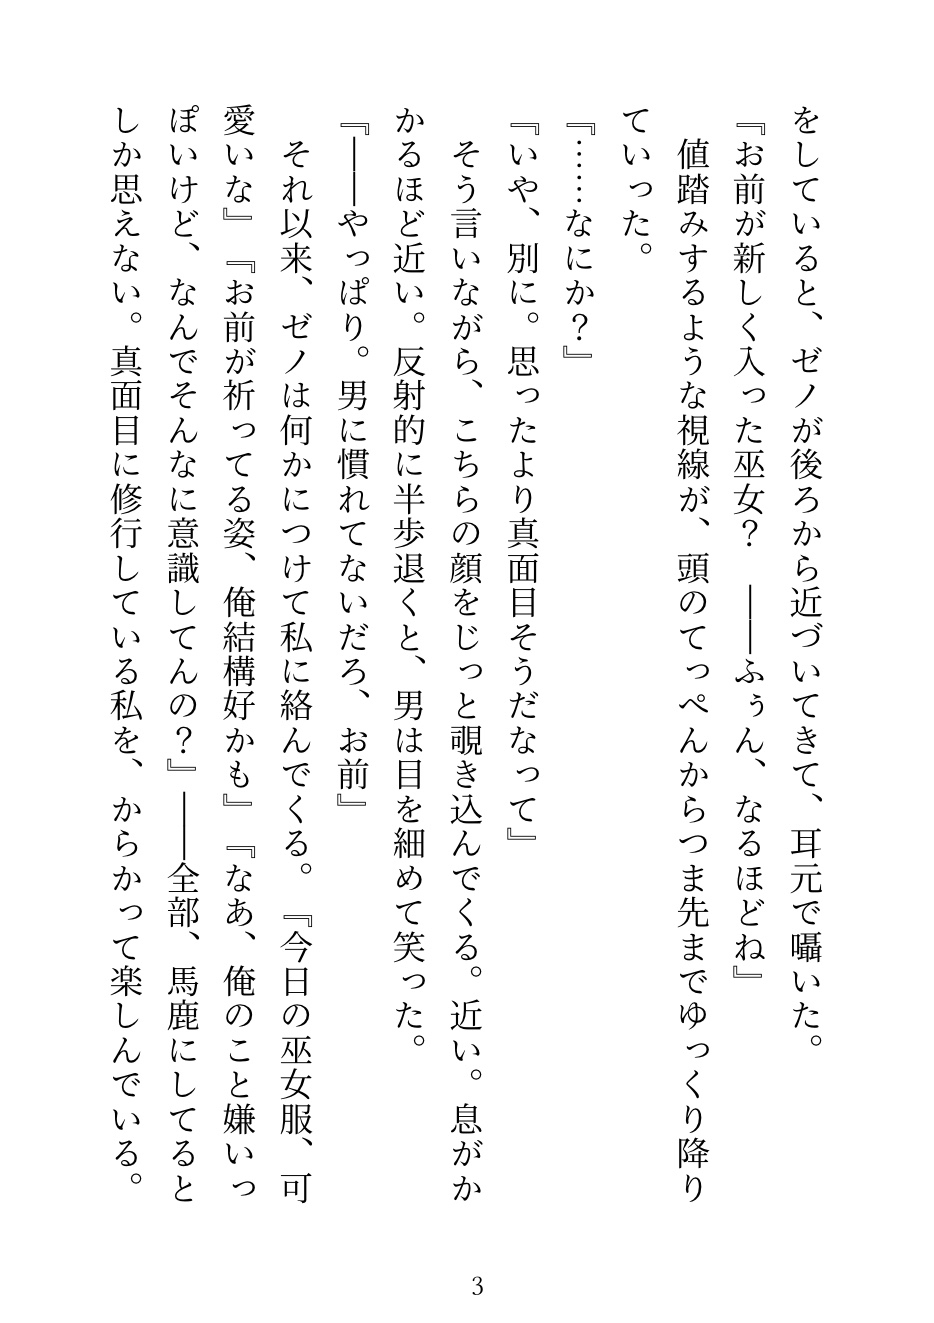 をしていると、ゼノが後ろから近づいてきて、耳元で囁いた。
『お前が新しく入った巫女？　――ふぅん、なるほどね』
　値踏みするような視線が、頭のてっぺんからつま先までゆっくり降り
ていった。
『……なにか？』
『いや、別に。思ったより真面目そうだなって』
　そう言いながら、こちらの顔をじっと覗き込んでくる。近い。息がか
かるほど近い。反射的に半歩退くと、男は目を細めて笑った。
『――やっぱり。男に慣れてないだろ、お前』
　それ以来、ゼノは何かにつけて私に絡んでくる。『今日の巫女服、可
愛いな』『お前が祈ってる姿、俺結構好かも』『なあ、俺のこと嫌いっ
ぽいけど、なんでそんなに意識してんの？』――全部、馬鹿にしてると
しか思えない。真面目に修行している私を、からかって楽しんでいる。
3